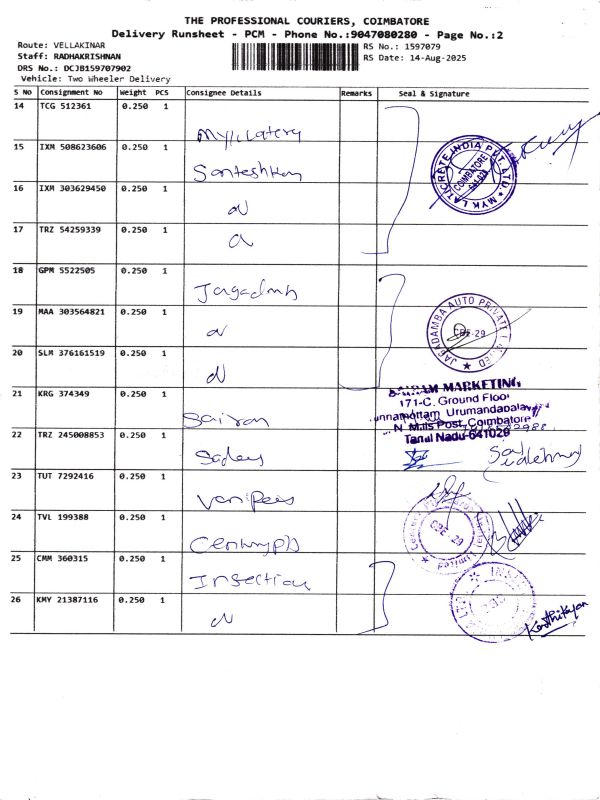 THE PROFESSIONAL COURIERS, COIMBATORE
Delivery Runsheet - PCM - Phone No.:9047080280 - Page No.:2
Route: VELLAKINAR
RS No.: 1597079
Staff: RADHAKRISHNAN
RS Date: 14-Aug-2025
DRS No.: DCJB159707902
Vehicle: Two Wheeler Delivery
S No Consignment No Weight PCS Consignee Details Remarks Seal & Signature
14 TCG 512361 0.250 1
15 IXM 508623606 0.250 1
16 IXM 303629450 0.250 1
MYK LATICRETE INDIA PVT. LTD.
COIMBATORE
17 TRZ 54259339 0.250 1
18 GPM 5522505 0.250 1
19 MAA 303564821 0.250 1
JAGADAMBA AUTO PRIVATE LIMITED
CBE-29
20 SLM 376161519 0.250 1
SAIRAM MARKETING
171-C. Ground Floor
21 KRG 374349 0.250 1
Sairam
Urumandapalayam
N. Mills Post, Coimbatore
Tamil Nadu-641029
22 TRZ 245008853 0.250 1
23 TUT 7292416 0.250 1
24 TVL 199388 0.250 1
CBE-29
25 CMM 360315 0.250 1
26 KMY 21387116 0.250 1
Karthikeyan